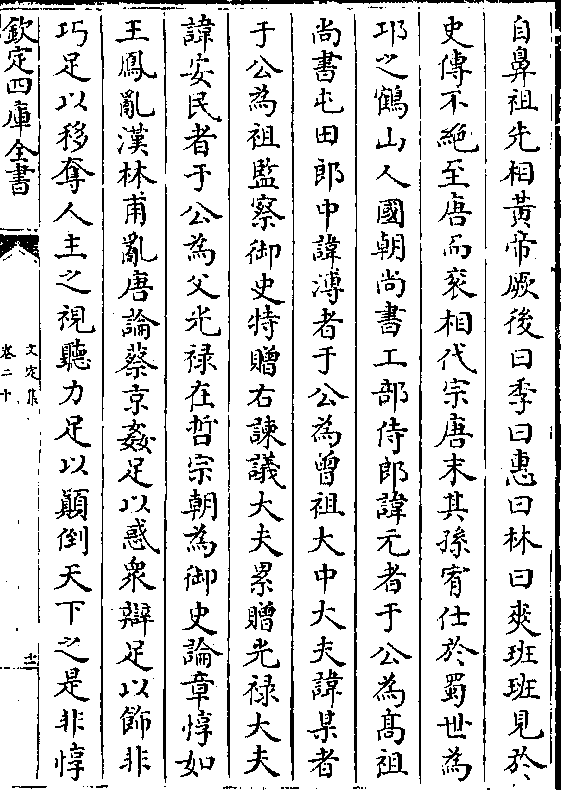 自鼻祖先相黄帝厥後曰季曰惠曰林曰奭班班見於
史傳不絶至唐而衮相代宗唐末其孫宥仕於蜀世為
邛之鶴山人國朝尚書工部侍郎諱元者于公為髙祖
尚書屯田郎中諱溥者于公為曽祖大中大夫諱某者
于公為祖監察御史特贈右諫議大夫累贈光禄大夫
諱安民者于公為父光禄在哲宗朝為御史論章惇如
王鳳亂漢林甫亂唐論蔡京姦足以惑衆辯足以飾非
巧足以移奪人主之視聽力足以顛倒天下之是非惇
欽定四庫全書
文定集
卷二十
十二